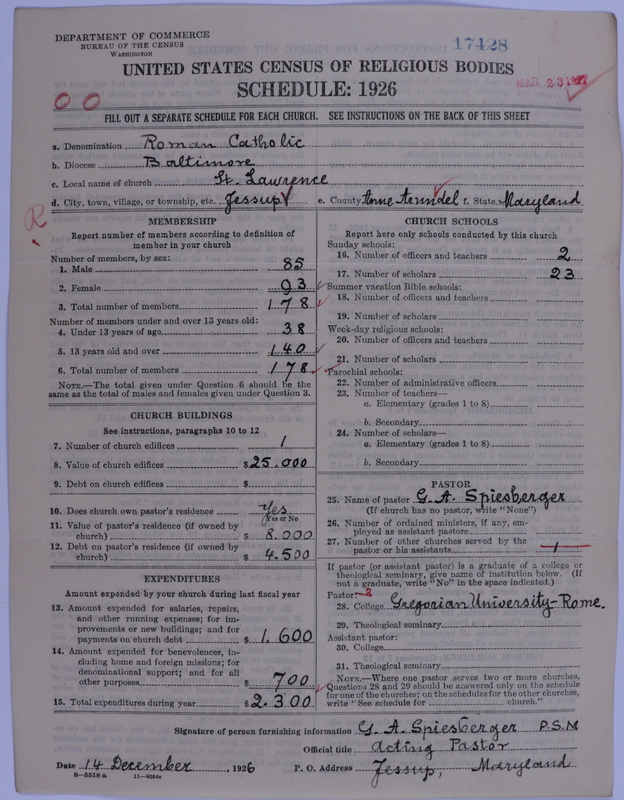 DEPARTMENT OF COMMERCE
BUREAU OF THE CENSUS
WASHINGTON
17428
UNITED STATES CENSUS OF RELIGIOUS BODIES
MAR 23 1927
SCHEDULE: 1926
FILL OUT A SEPARATE SCHEDULE FOR EACH CHURCH. SEE INSTRUCTIONS ON THE BACK OF THIS SHEET
a. Denomination Roman Catholic
b. Diocese Baltimore
c. Local name of church St. Lawrence
d. City, town, village, or township, etc. Jessup e. County Anne Arundel f. State Maryland
R
MEMBERSHIP
Report number of members according to definition of
member in your church
Number of members, by sex:
1. Male 85
2. Female 93
3. Total number of members 178
Number of members under and over 13 years old:
4. Under 13 years of age 38
5. 13 years old and over 140
6. Total number of members 178
NOTE.—The total given under Question 6 should be the
same as the total of males and females given under Question 3.
CHURCH BUILDINGS
See instructions, paragraphs 10 to 12
7. Number of church edifices 1
8. Value of church edifices $25.000
9. Debt on church edifices $
10. Does church own pastor's residence Yes
Yes or No
11. Value of pastor's residence (if owned by
church) $ 8.000
12. Debt on pastor's residence (if owned by
church) $ 4.500
EXPENDITURES
Amount expended by your church during last fiscal year
13. Amount expended for salaries, repairs,
and other running expenses; for im-
provements or new buildings; and for
payments on church debt $ 1.600
14. Amount expended for benevolences, in-
cluding home and foreign missions; for
denominational support; and for all
other purposes $ 700
15. Total expenditures during year $ 2.300
CHURCH SCHOOLS
Report here only schools conducted by this church
Sunday schools:
16. Number of officers and teachers 2
17. Number of scholars 23
Summer vacation Bible schools:
18. Number of officers and teachers
19. Number of scholars
Week-day religious schools:
20. Number of officers and teachers
21. Number of scholars
Parochial schools:
22. Number of administrative officers
23. Number of teachers—
a. Elementary (grades 1 to 8)
b. Secondary
24. Number of scholars—
a. Elementary (grades 1 to 8)
b. Secondary
PASTOR
25. Name of pastor G. A. Spiesberger
(If church has no pastor, write "None")
26. Number of ordained ministers, if any, em-
ployed as assistant pastors
27. Number of other churches served by the
pastor or his assistants 1
If pastor (or assistant pastor) is a graduate of a college or
theological seminary, give name of institution below. (If
not a graduate, write "No" in the space indicated.)
Pastor:
28. College Gregorian University-Rome.
29. Theological seminary
Assistant pastor:
30. College
31. Theological seminary
NOTE.—Where one pastor serves two or more churches,
Questions 28 and 29 should be answered only on the schedule
for one of the churches; on the schedules for the other churches,
write "See schedule for church."
Signature of person furnishing information G. A. Spiesberger P.S.M
Official title acting Pastor
Date 14 December, 1926 P. O. Address Jessup, Maryland
8—5518 a